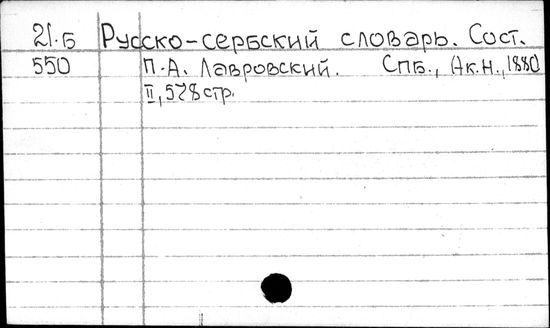 21.Б Русско-сербский словарь. Сост.
550 П.А. Лавровский. СПБ., Ак.Н., 1880
II, 578 стр.